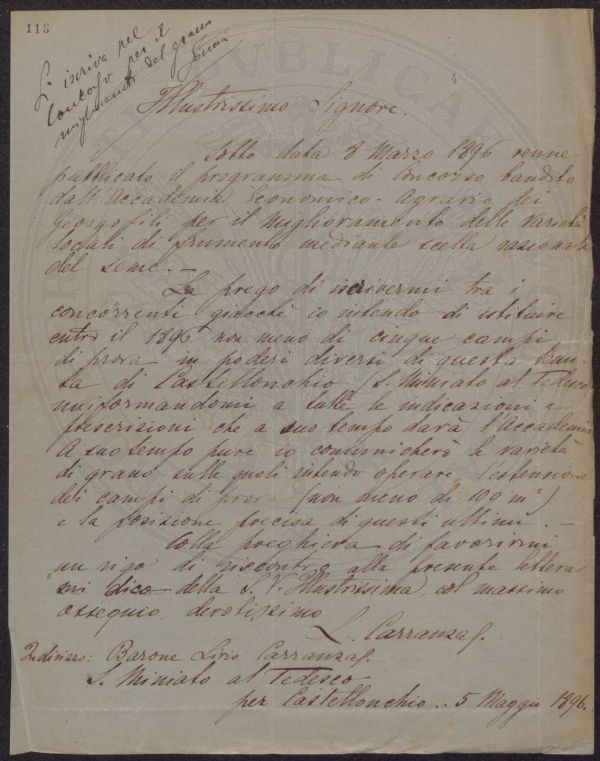 116
Si iscriva pel
Concorso per il
miglioramento del grano
Illustrissimo Signore.
Sotto data 8 Marzo 1896 venne
pubblicato il programma di concorso bandito
dall'Accademia Economico-Agraria dei
Georgofili per il miglioramento delle varietà
locali di frumento mediante scelta razionale
del seme. —
La prego di iscrivermi tra i
concorrenti giacchè io intendo di istituire
entro il 1896 non meno di cinque campi
di prova in poderi diversi di questa tenu-
ta di Castellonchio (S. Miniato al Tedesco)
uniformandomi a tutte le indicazioni e
prescrizioni che a suo tempo darà l'Accademia
A suo tempo pure io comunicherò le varietà
di grano sulle quali intendo operare l'estensione
dei campi di prova (non meno di 100 m²)
e la posizione precisa di questi ultimi. —
Colla preghiera di favorirmi
un rigo di riscontro alla presente lettera
mi dico della S. V. Illustrissima, col massimo
ossequio, devotissimo
L. Carranza
Indirizzo: Barone Livio Carranza
S. Miniato al Tedesco
per Castellonchio .. 5 Maggio 1896.